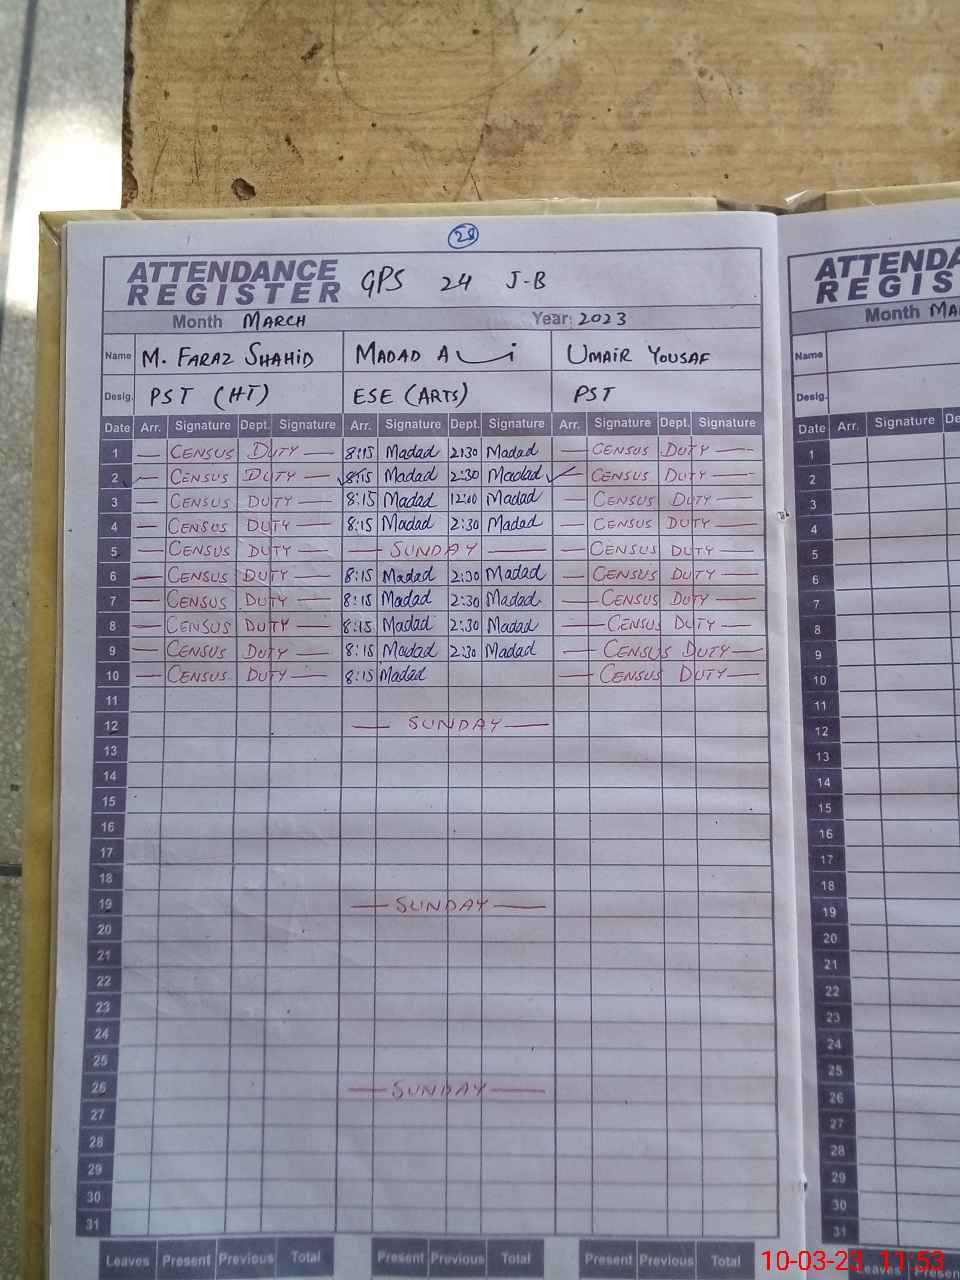 28
ATTENDANCE REGISTER GPS 24 J-B
Month MARCH Year: 2023
Name M. FARAZ SHAHID MADAD Ali UMAIR YOUSAF
Desig. PST (HT) ESE (ARTS) PST
Date Arr. Signature Dept. Signature Arr. Signature Dept. Signature Arr. Signature Dept. Signature
1 — CENSUS DUTY — 8:15 Madad 2:30 Madad — CENSUS DUTY —
2 — CENSUS DUTY — 8:15 Madad 2:30 Madad — CENSUS DUTY —
3 — CENSUS DUTY — 8:15 Madad 12:00 Madad — CENSUS DUTY —
4 — CENSUS DUTY — 8:15 Madad 2:30 Madad — CENSUS DUTY —
5 — CENSUS DUTY — — SUNDAY — — CENSUS DUTY —
6 — CENSUS DUTY — 8:15 Madad 2:30 Madad — CENSUS DUTY —
7 — CENSUS DUTY — 8:15 Madad 2:30 Madad — CENSUS DUTY —
8 — CENSUS DUTY — 8:15 Madad 2:30 Madad — CENSUS DUTY —
9 — CENSUS DUTY — 8:15 Madad 2:30 Madad — CENSUS DUTY —
10 — CENSUS DUTY — 8:15 Madad — CENSUS DUTY —
11
12 — SUNDAY —
13
14
15
16
17
18
19 — SUNDAY —
20
21
22
23
24
25
26 — SUNDAY —
27
28
29
30
31
Leaves Present Previous Total Present Previous Total Present Previous Total
ATTENDA
REGIS
Month MA
Name
Desig.
Date Arr. Signature De
1
2
3
4
5
6
7
8
9
10
11
12
13
14
15
16
17
18
19
20
21
22
23
24
25
26
27
28
29
30
31
Leaves Presen
10-03-23 11:53